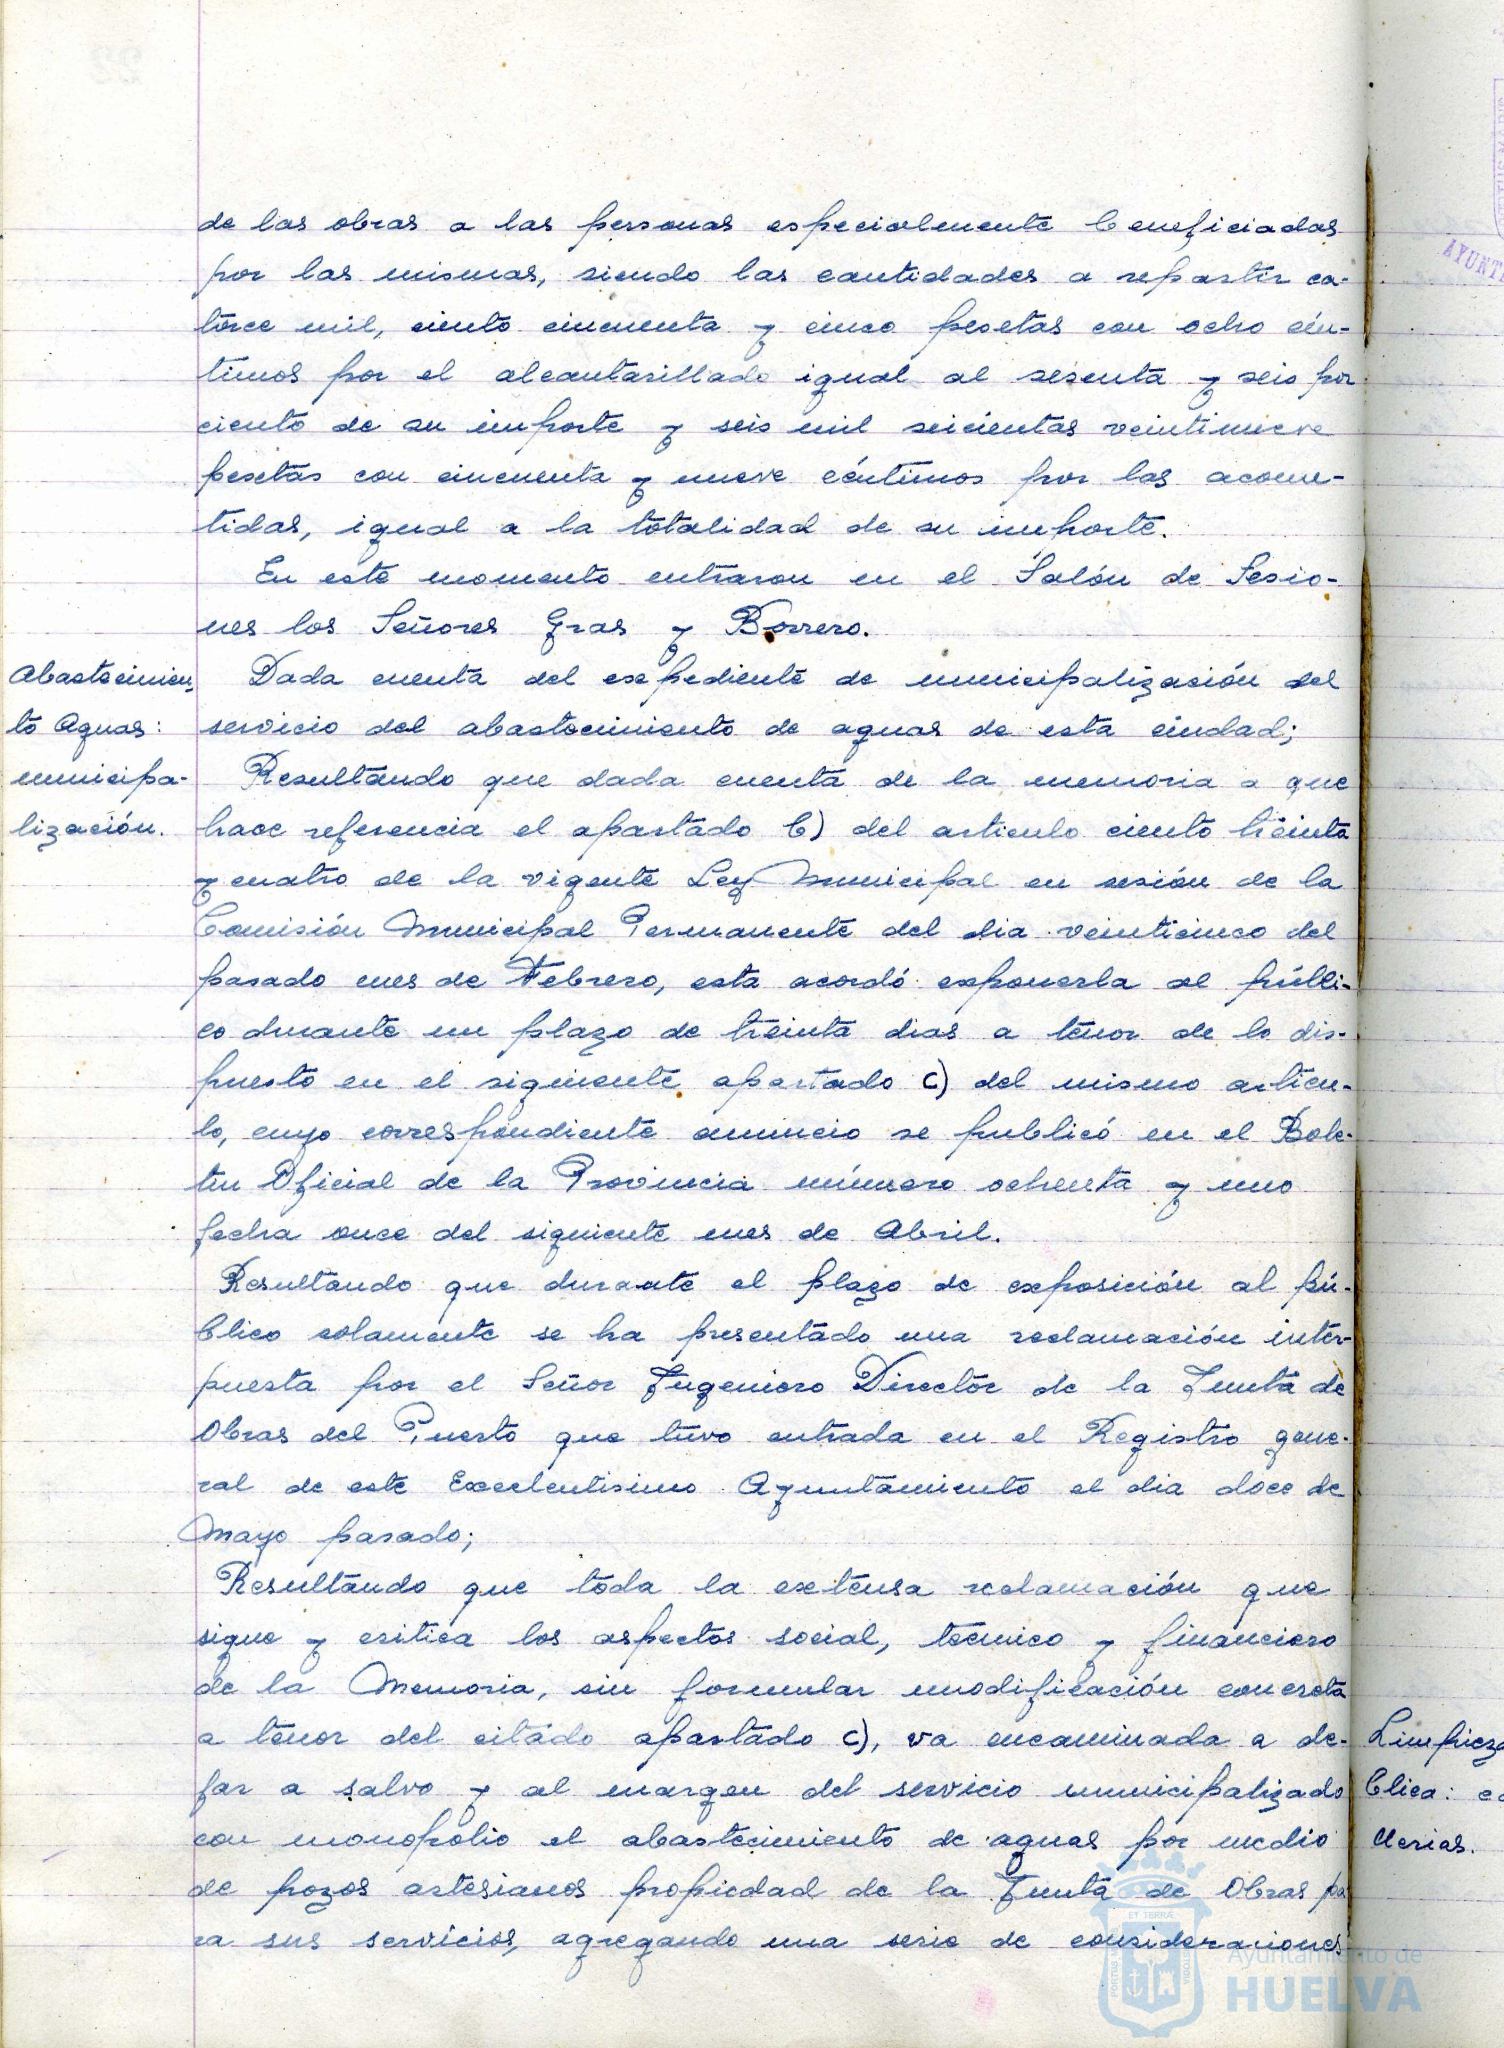 de las obras a las personas especialmente beneficiadas
por las mismas, siendo las cantidades a repartir ca-
torce mil, ciento cincuenta y cinco pesetas con ocho cén-
timos por el alcantarillado igual al sesenta y seis por
ciento de su importe y seis mil seicientas veintinueve
pesetas con cincuenta y nueve céntimos por las acome-
tidas, igual a la totalidad de su importe.
En este momento entraron en el Salón de Sesio-
nes los Señores Gras y Borrero.
Abastecimien-
to Aguas:
municipa-
lización.
Dada cuenta del expediente de municipalización del
servicio del abastecimiento de aguas de esta ciudad;
Resultando que dada cuenta de la memoria a que
hace referencia el apartado b) del articulo ciento treinta
y cuatro de la vigente Ley Municipal en sesión de la
Comisión Municipal Permanente del dia veinticinco del
pasado mes de Febrero, esta acordó exponerla al públi-
co durante un plazo de treinta dias a tenor de lo dis-
puesto en el siguiente apartado c) del mismo artícu-
lo, cuyo correspondiente anuncio se publicó en el Bole-
tin Oficial de la Provincia número ochenta y uno
fecha once del siguiente mes de Abril.
Resultando que durante el plazo de exposición al pú-
blico solamente se ha presentado una reclamación inter-
puesta por el Señor Ingeniero Director de la Junta de
Obras del Puerto que tuvo entrada en el Registro gene-
ral de este Excelentisimo Ayuntamiento el dia doce de
Mayo pasado;
Resultando que toda la extensa reclamación que
sigue y critica los aspectos social, tecnico y financiero
de la Memoria, sin formular modificación concreta
a tenor del citado apartado c), va encaminada a de-
jar a salvo y al margen del servicio municipalizado
con monopolio el abastecimiento de aguas por medio
de pozos artesianos propiedad de la Junta de Obras pa
ra sus servicios, agregando una serie de consideraciones
Limpieza
blica:
llerias.
AYUNT
ET TERRÆ
Ayuntamiento de
HUELVA